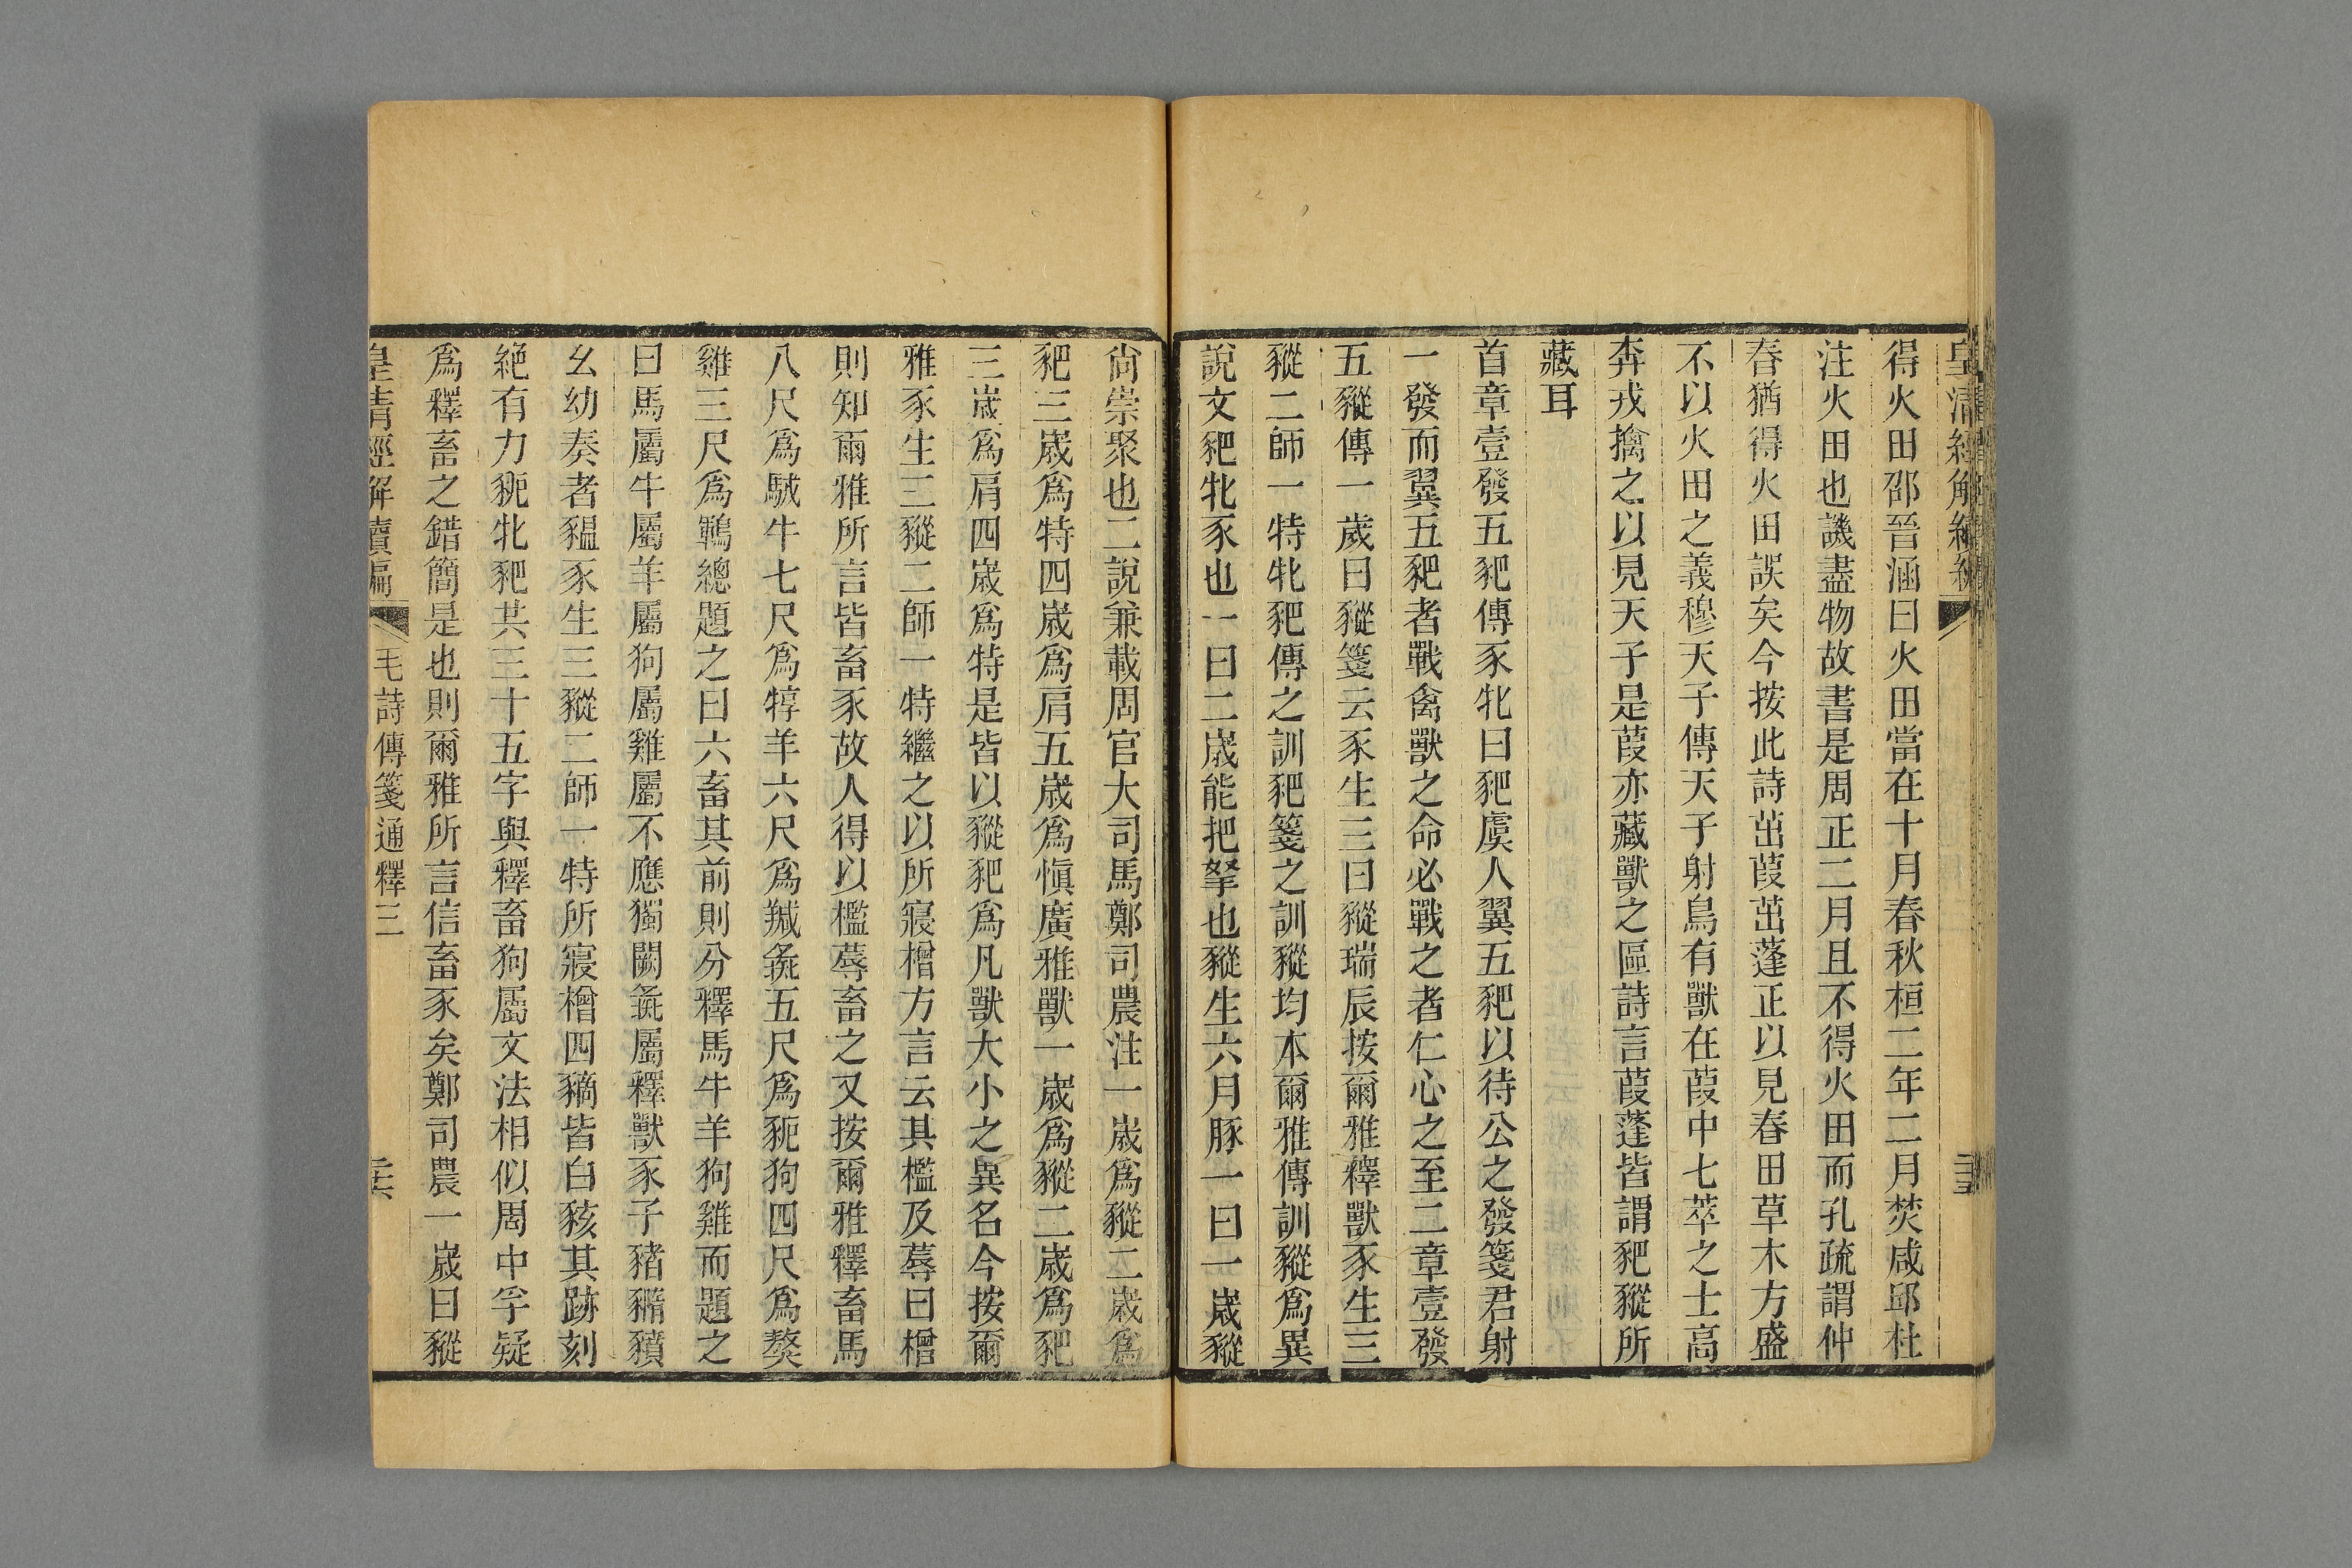 皇清經解續編
得火田邵晉涵曰火田當在十月春秋桓二年二月焚咸邱杜
注火田也譏盡物故書是周正二月且不得火田而孔疏謂仲
春猶得火田誤矣今按此詩茁葭茁蓬正以見春田草木方盛
不以火田之義穆天子傳天子射鳥有獸在葭中七萃之士高
奔戎擒之以見天子是葭亦藏獸之區詩言葭蓬皆謂豝豵所
藏耳
首章壹發五豝傳豕牝曰豝虞人翼五豝以待公之發箋君射
一發而翼五豝者戰禽獸之命必戰之者仁心之至二章壹發
五豵傳一歲曰豵箋云豕生三曰豵瑞辰按爾雅釋獸豕生三
豵二師一特牝豝傳之訓豝箋之訓豵均本爾雅傳訓豵爲異
說文豝牝豕也一曰二歲能把拏也豵生六月豚一曰一歲豵
尚崇聚也二說兼載周官大司馬鄭司農注一歲爲豵二歲爲
豝三歲爲特四歲爲肩五歲爲愼廣雅獸一歲爲豵二歲爲豝
三歲爲肩四歲爲特是皆以豵豝爲凡獸大小之異名今按爾
雅豕生三豵二師一特繼之以所寢橧方言云其檻及蓐曰橧
則知爾雅所言皆畜豕故人得以檻蓐畜之又按爾雅釋畜馬
八尺爲駥牛七尺爲犉羊六尺爲羬彘五尺爲豟狗四尺爲獒
雞三尺爲鶤總題之曰六畜其前則分釋馬牛羊狗雞而題之
曰馬屬牛屬羊屬狗屬雞屬不應獨闕彘屬釋獸豕子豬䝐豶
幺幼奏者豱豕生三豵二師一特所寢橧四豴皆白豥其跡刻
絕有力豟牝豝共三十五字與釋畜狗屬文法相似周中孚疑
爲釋畜之錯簡是也則爾雅所言信畜豕矣鄭司農一歲曰豵
皇清經解續編 毛詩傳箋通釋三 三六